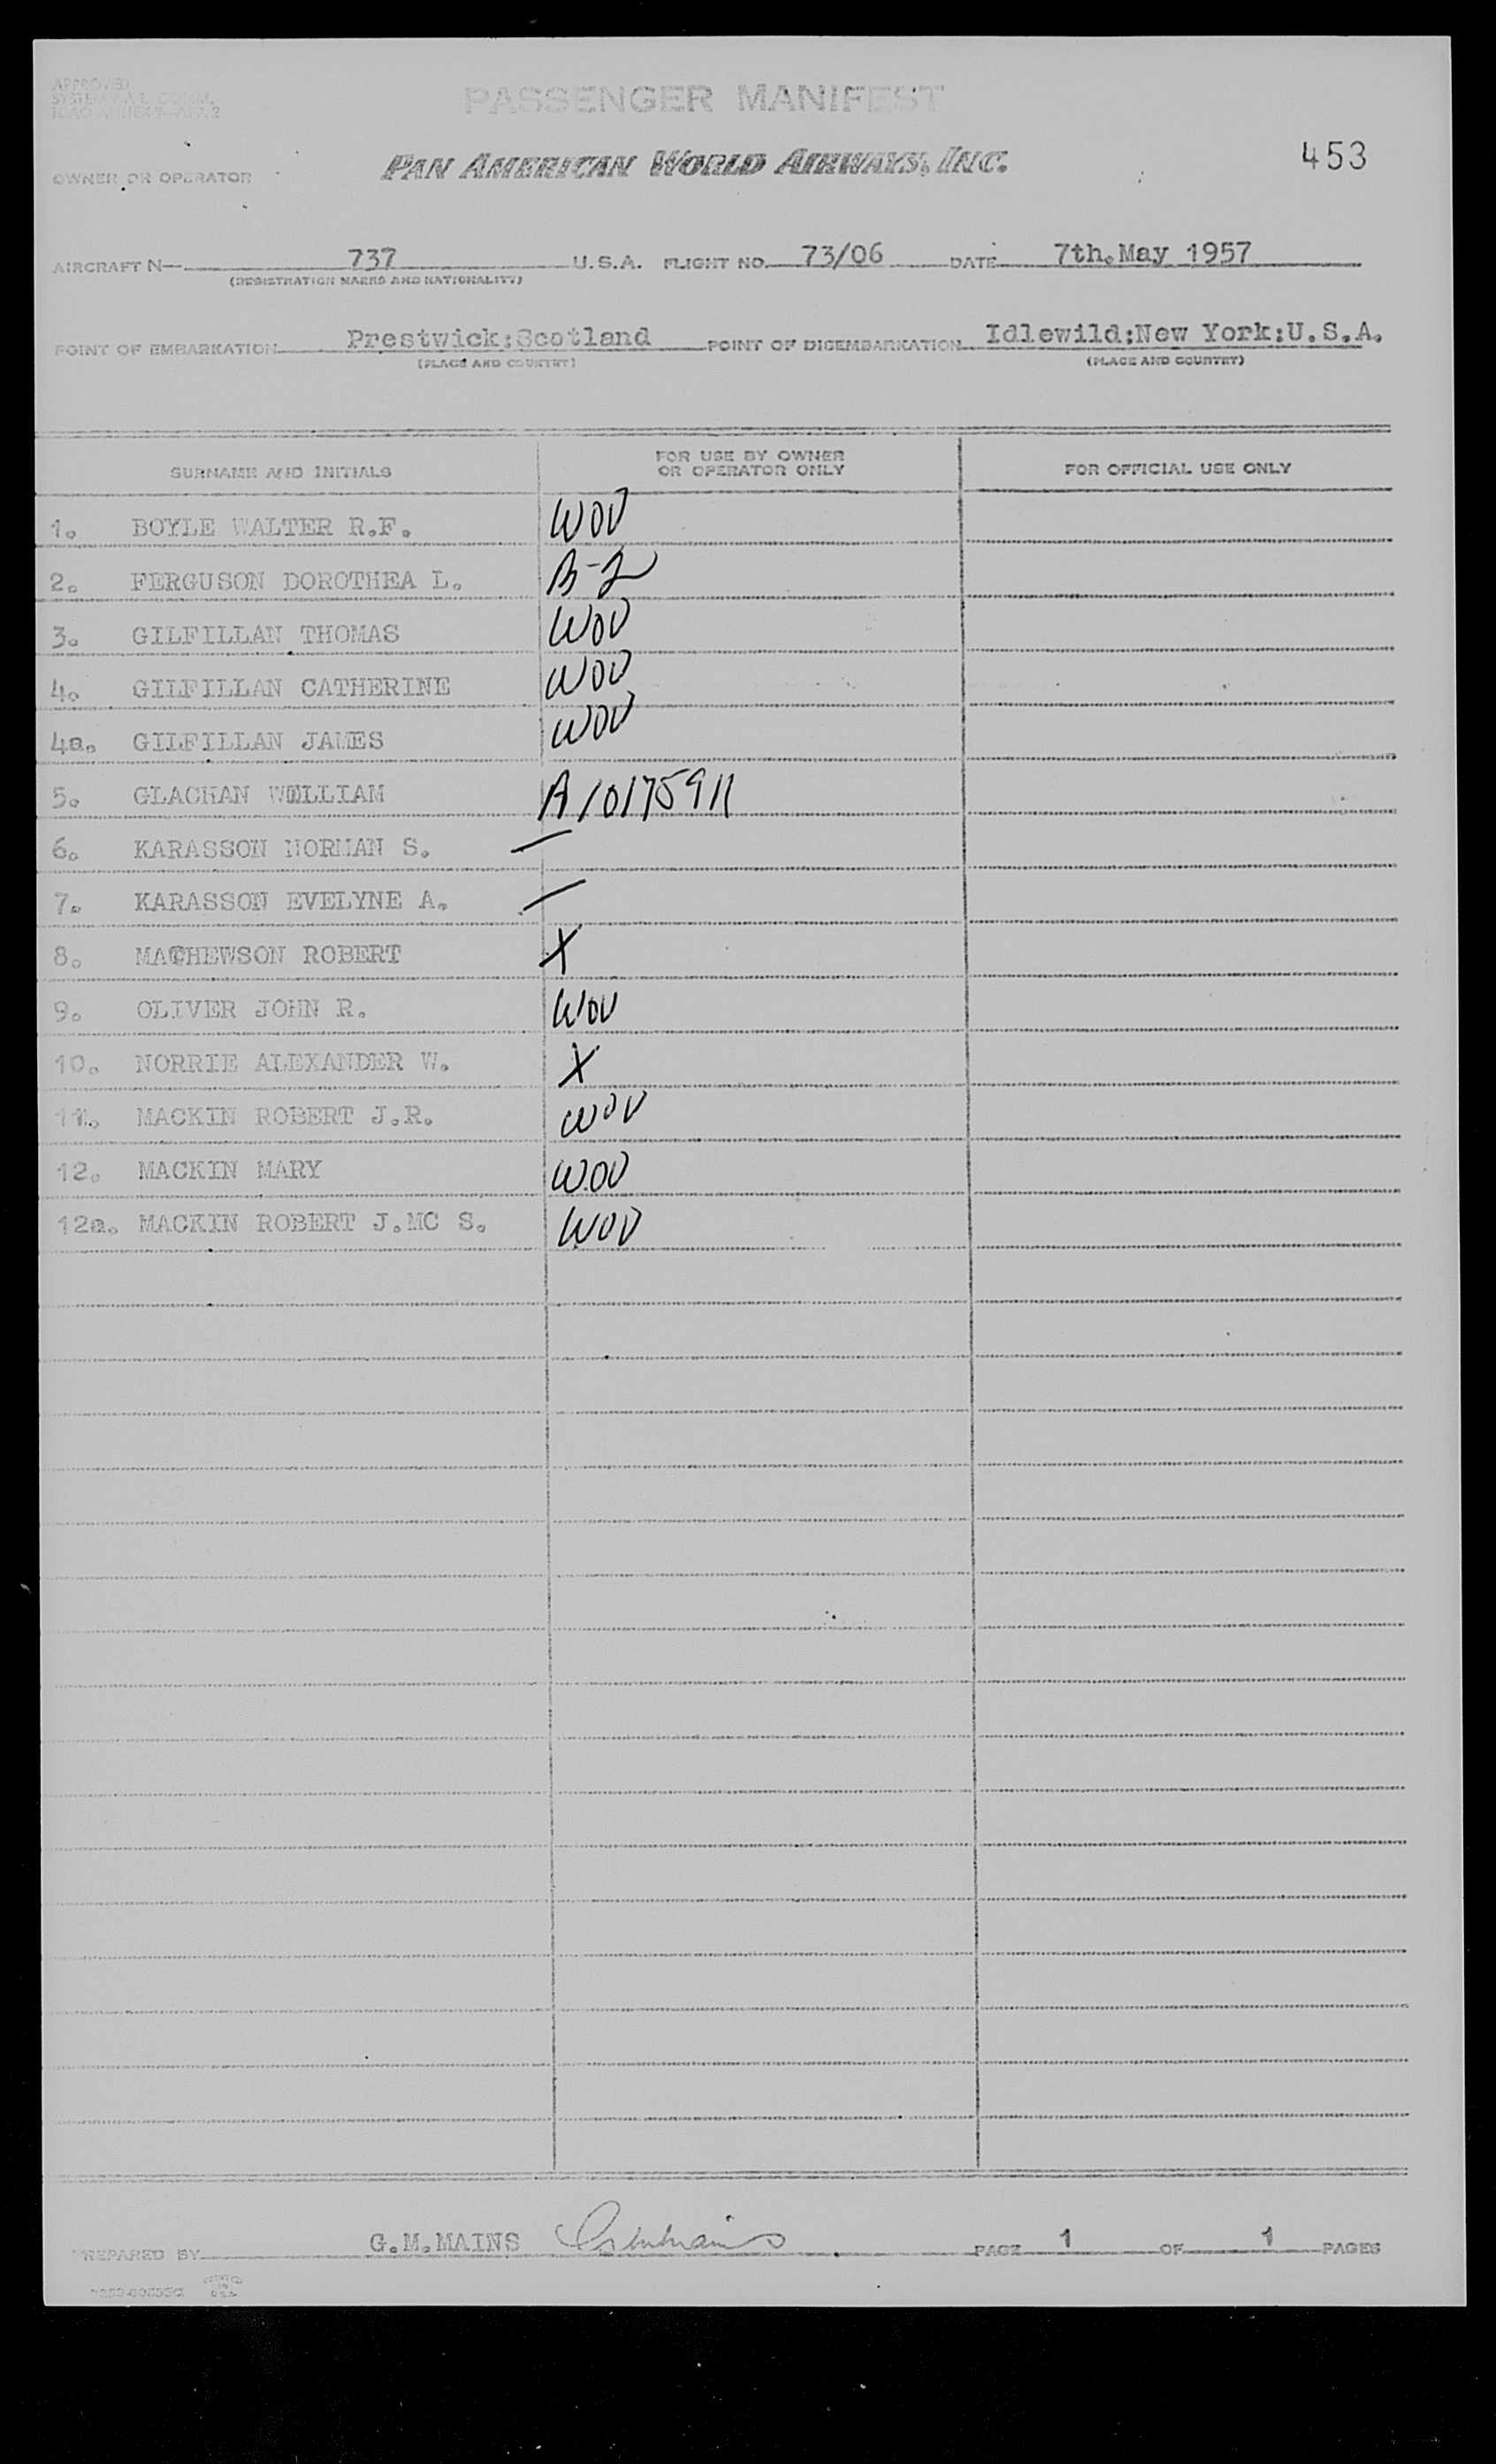 APPROVED
PASSENGER MANIFEST
OWNER OR OPERATOR PAN AMERICAN WORLD AIRWAYS, INC. 453
AIRCRAFT N— 737 U.S.A. FLIGHT NO. 73/06 DATE 7th.May 1957
(REGISTRATION MARKS AND NATIONALITY)
POINT OF EMBARKATION Prestwick;Scotland POINT OF DISEMBARKATION Idlewild;New York;U.S.A.
(PLACE AND COUNTRY) (PLACE AND COUNTRY)
SURNAME AND INITIALS FOR USE BY OWNER OR OPERATOR ONLY FOR OFFICIAL USE ONLY
1. BOYLE WALTER R.F. WOV
2. FERGUSON DOROTHEA L. B-2
3. GILFILLAN THOMAS WOV
4. GILFILLAN CATHERINE WOV
4a. GILFILLAN JAMES WOV
5. GLACHAN WILLIAM A10175911
6. KARASSON NORMAN S. —
7. KARASSON EVELYNE A. —
8. MATHEWSON ROBERT X
9. OLIVER JOHN R. WOV
10. NORRIE ALEXANDER W. X
11. MACKIN ROBERT J.R. WOV
12. MACKIN MARY WOV
12a. MACKIN ROBERT J.MC S. WOV
PREPARED BY G.M.MAINS PAGE 1 OF 1 PAGES